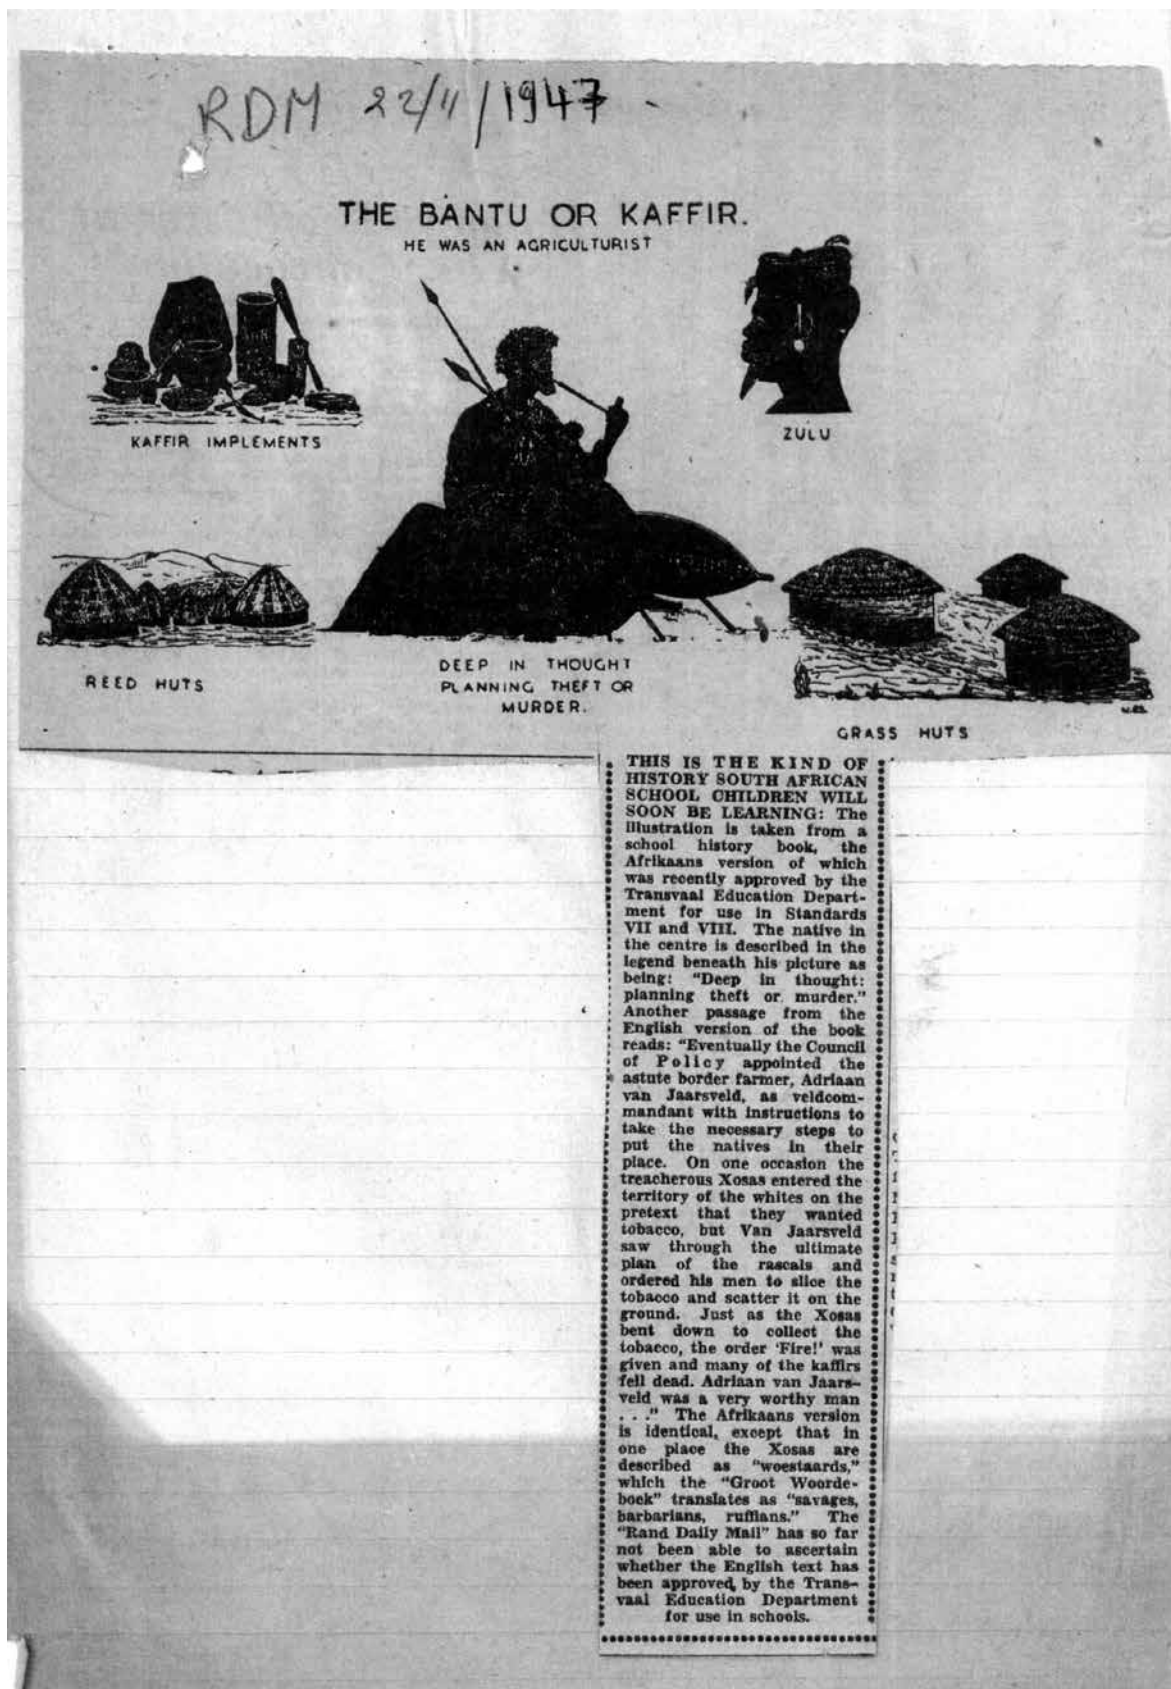 RDM 22/11/1947
THE BANTU OR KAFFIR.
HE WAS AN AGRICULTURIST
KAFFIR IMPLEMENTS
ZULU
REED HUTS
DEEP IN THOUGHT
PLANNING THEFT OR
MURDER.
GRASS HUTS
THIS IS THE KIND OF
HISTORY SOUTH AFRICAN
SCHOOL CHILDREN WILL
SOON BE LEARNING: The
illustration is taken from a
school history book, the
Afrikaans version of which
was recently approved by the
Transvaal Education Depart-
ment for use in Standards
VII and VIII. The native in
the centre is described in the
legend beneath his picture as
being: "Deep in thought:
planning theft or murder."
Another passage from the
English version of the book
reads: "Eventually the Council
of Policy appointed the
astute border farmer, Adriaan
van Jaarsveld, as veldcom-
mandant with instructions to
take the necessary steps to
put the natives in their
place. On one occasion the
treacherous Xosas entered the
territory of the whites on the
pretext that they wanted
tobacco, but Van Jaarsveld
saw through the ultimate
plan of the rascals and
ordered his men to slice the
tobacco and scatter it on the
ground. Just as the Xosas
bent down to collect the
tobacco, the order 'Fire!' was
given and many of the kaffirs
fell dead. Adriaan van Jaars-
veld was a very worthy man
. . ." The Afrikaans version
is identical, except that in
one place the Xosas are
described as "woestaards,"
which the "Groot Woorde-
boek" translates as "savages,
barbarians, ruffians." The
"Rand Daily Mail" has so far
not been able to ascertain
whether the English text has
been approved by the Trans-
vaal Education Department
for use in schools.